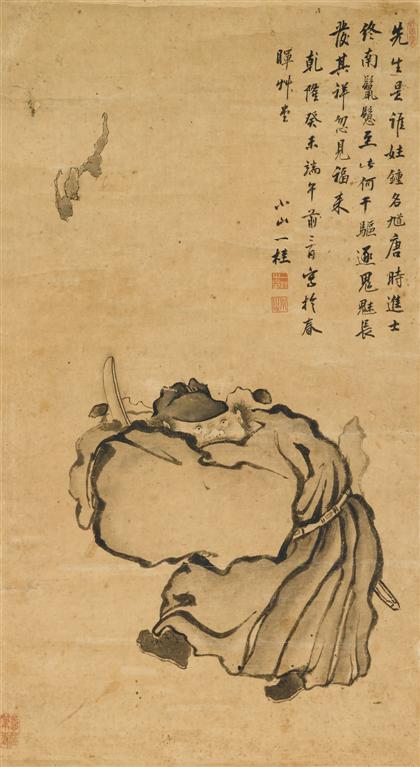 先生是誰姓鍾名馗唐時進士
終南鬣至此何干驅逐鬼魅長
發其祥忽見福来
乾隆癸未端午前三日寫於春
暉艸堂
小山一桂